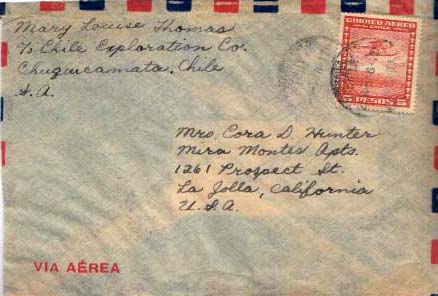 Mary Louise Thomas
% Chile Exploration Co.
Chuquicamata, Chile
S.A.
CORREO AEREO
DE CHILE
5 PESOS 5
Mrs. Cora D. Hunter
Mira Montes Apts.
1261 Prospect St.
La Jolla, California
U.S.A.
VIA AÉREA